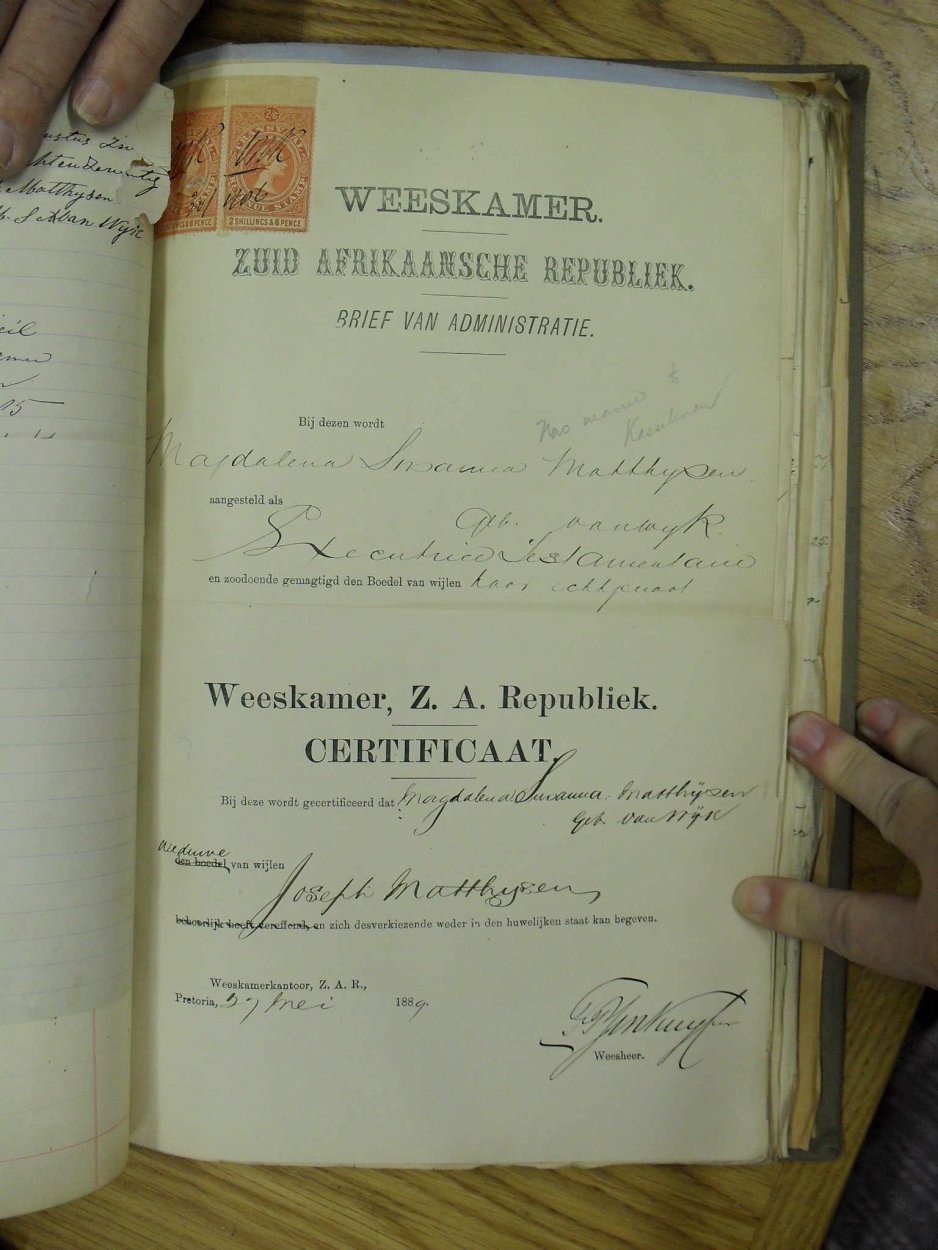 Matthysen
van Wyk
15
2/6
2 SHILLINGS & 6 PENCE
2 SHILLINGS & 6 PENCE
WEESKAMER.
ZUID AFRIKAANSCHE REPUBLIEK.
BRIEF VAN ADMINISTRATIE.
Bij dezen wordt
Magdalena Susanna Matthysen
aangesteld als
Geb. van Wyk.
Executrice Testamentair
en zoodoende gemagtigd den Boedel van wijlen haar echtgenoot
Weeskamer, Z. A. Republiek.
CERTIFICAAT.
Bij deze wordt gecertificeerd dat Magdalena Susanna Matthijsen
Geb van Wijk
weduwe
den boedel van wijlen
Joseph Matthysen
behoorlijk heeft vereffend, en zich desverkiezende weder in den huwelijken staat kan begeven.
Weeskamerkantoor, Z. A. R.,
Pretoria, 27 Mei 1889.
Weesheer.